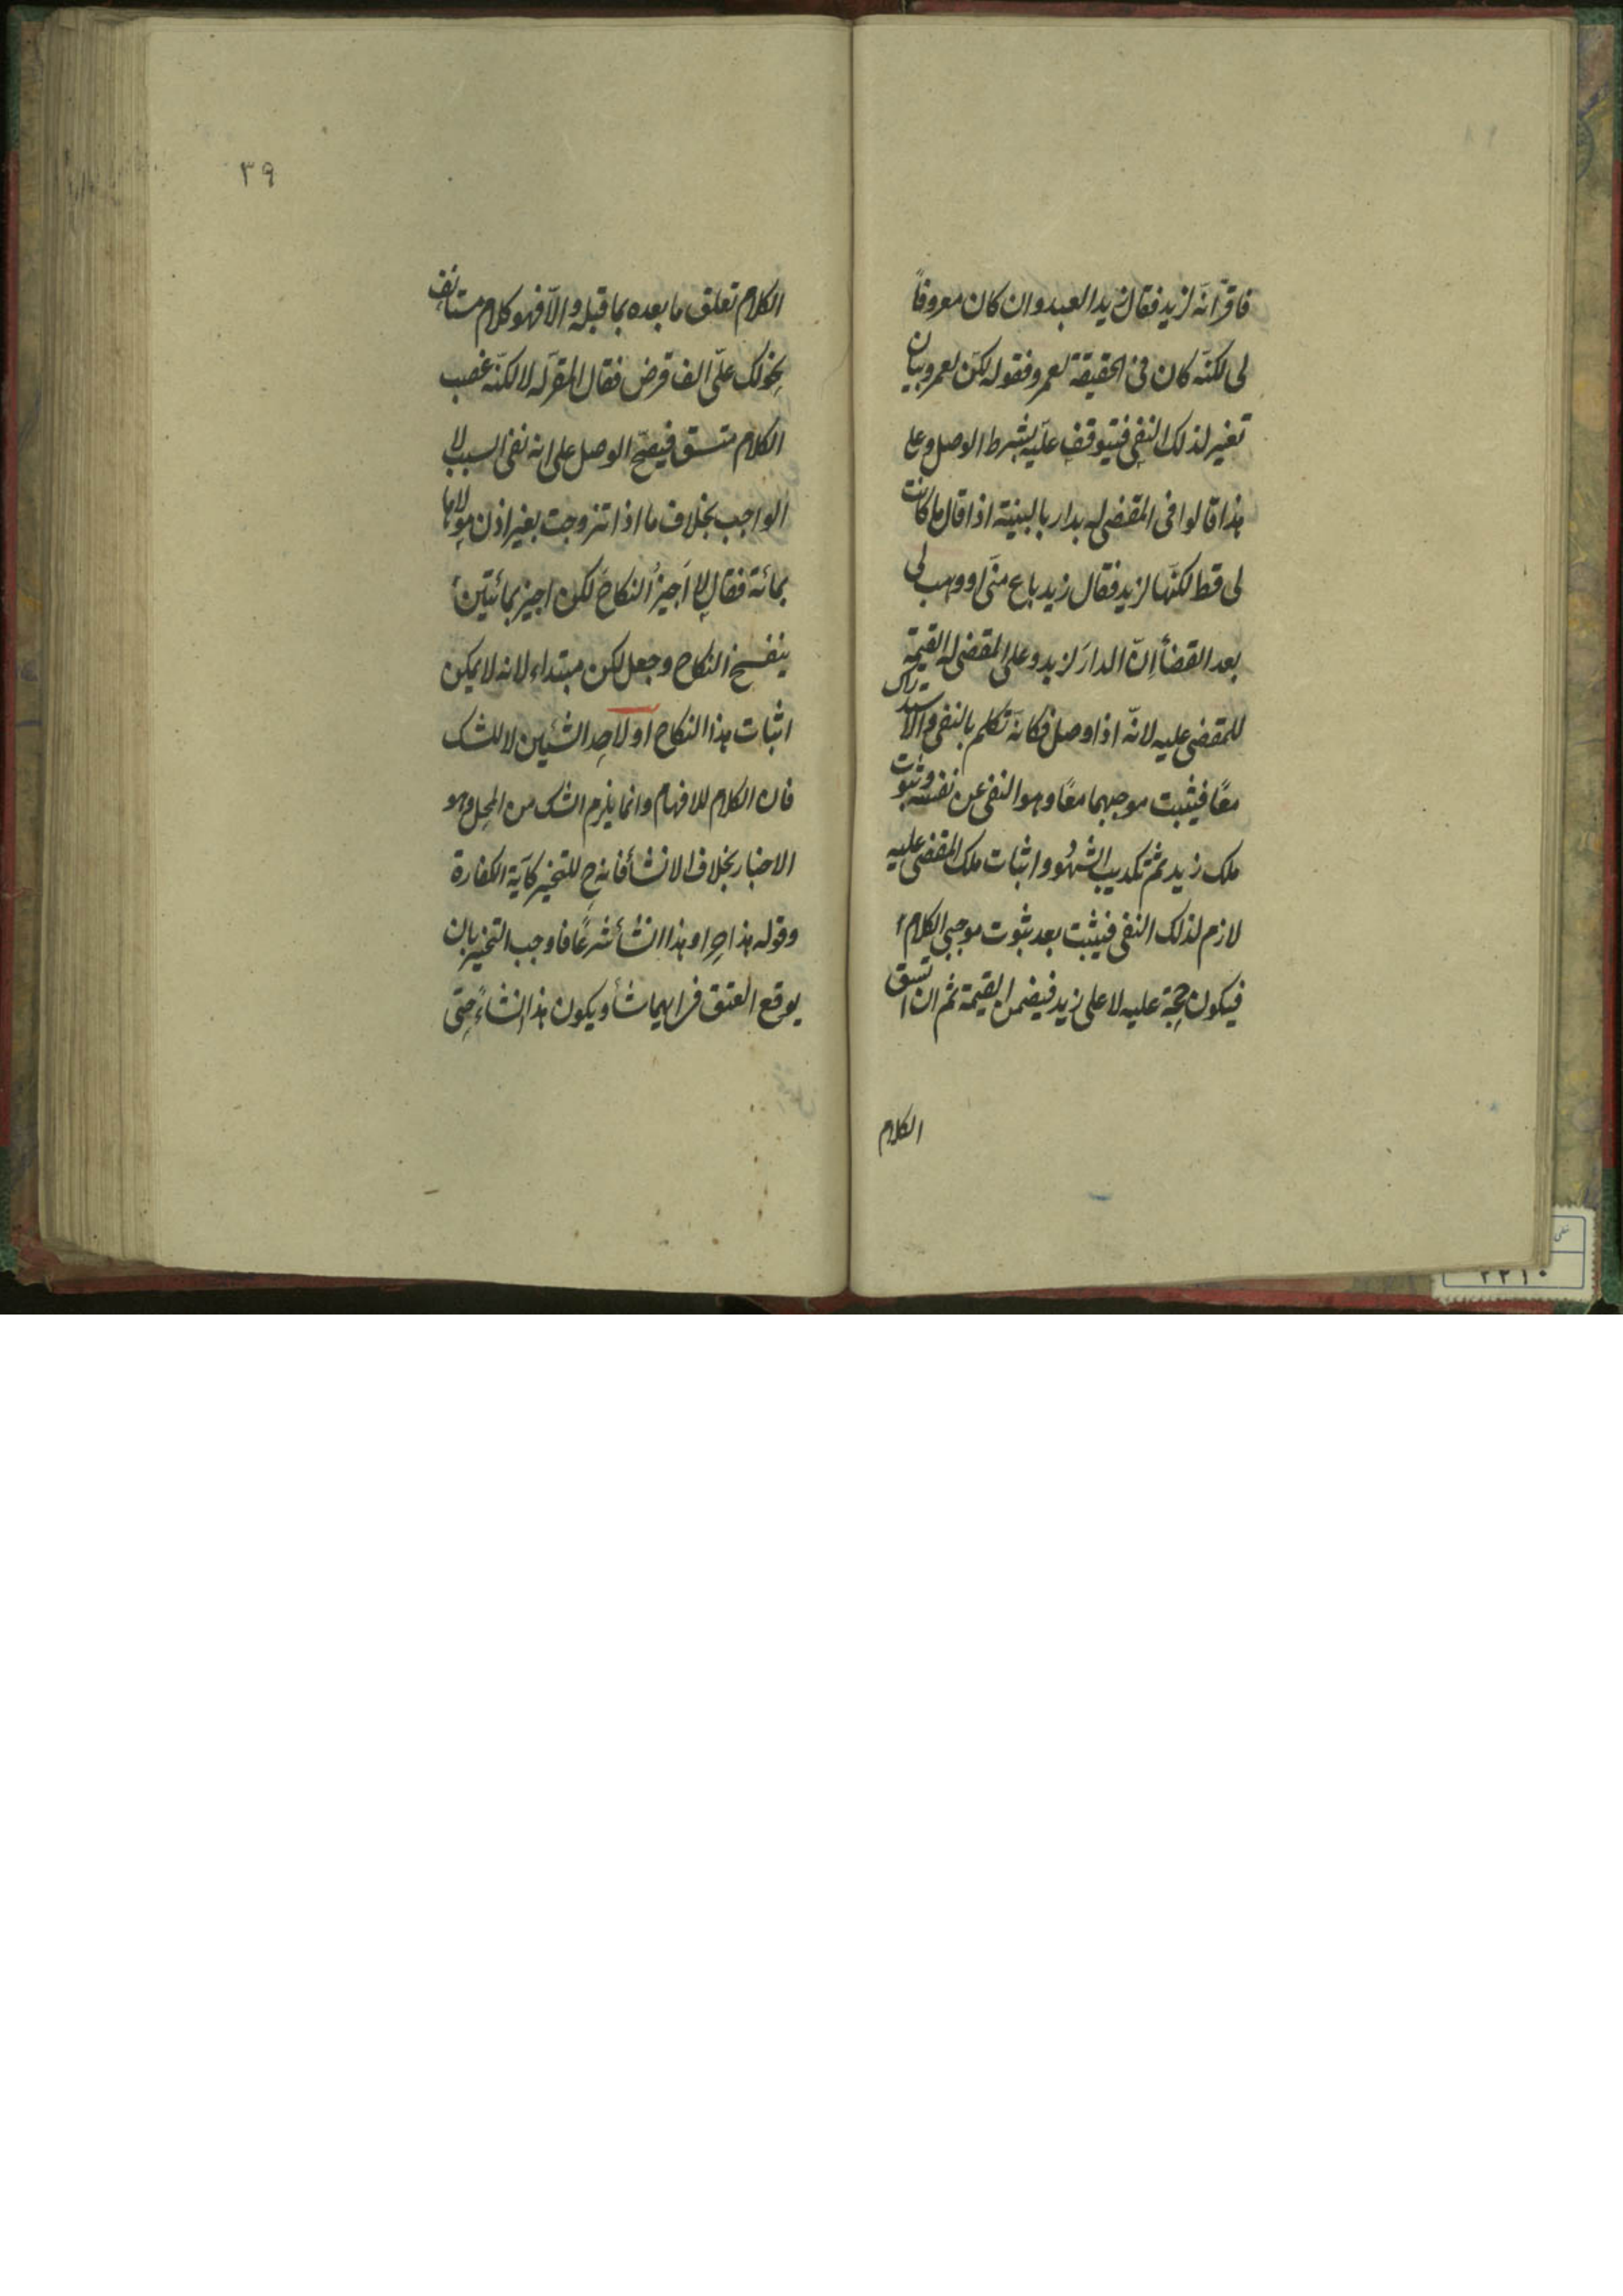 فاقرّ انّه لزيد فقال زيد العبد وان كان معروفاً
لى لكنّه كان فى الحقيقة لعمرو فقوله لكن لعمرو بيان
تغير لذلك النفى فيتوقف عليه بشرط الوصل وعلى
هذا قالوا فى المقضى له بدار بالبينة اذا قال ما كانت
لى قط لكنّها لزيد فقال زيد باع منّى او وهب لى
بعد القضأ انّ الدار لزيد وعلى المقضى له القيمة
للمقضى عليه لانّه اذا وصل فكانّه تكلم بالنفى والاستدراك
معًا فيثبت موجبهما معًا وهو النفى عن نفسه وثبوت
ملك زيد ثم تكذيب الشهود واثبات ملك المقضى عليه
لازم لذلك النفى فيثبت بعد ثبوت موجبى الكلام
فيكون حجة عليه لا على زيد فيضمن القيمة ثم ان اتسق
الكلام
٣٩
الكلام تعلق ما بعده بما قبله والّا فهو كلام مستأنف
نحو لك علىّ الف قرض فقال المقرّ له لا لكنّه غصب
الكلام متسق فيصحّ الوصل على انه نفى السبب لا
الواجب بخلاف ما اذا تزوجت بغير اذن مولاها
بمائة فقال لا اجيز النكاح لكن اجيز بمائتين
ينفسخ النكاح وجعل لكن مبتداء لانه لا يمكن
اثبات هذا النكاح او لاحد الشيئين لا للشك
فان الكلام للافهام وانما يلزم الشك من المحل وهو
الاخبار بخلاف الانشأ فانه ح للتخير كآية الكفارة
وقوله هذا حر او هذا انشأ شرعًا فاوجب التخير بان
يوقع العتق فى ايهما شأ ويكون هذا انشاءً حتى
٢٢١٠